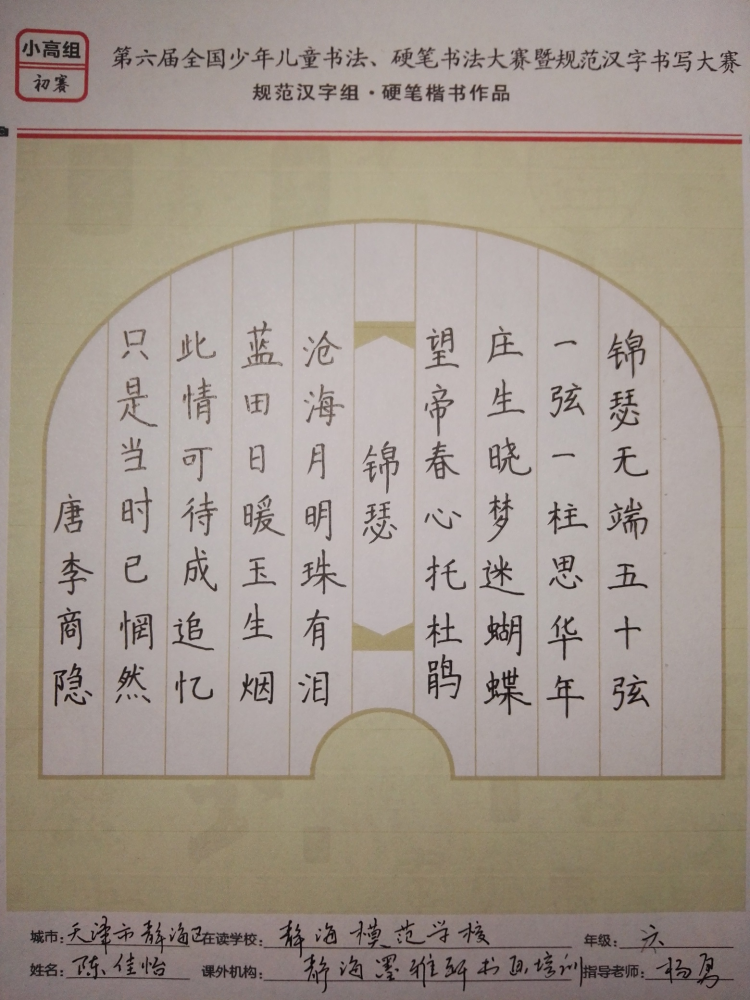 小高组
初赛
第六届全国少年儿童书法、硬笔书法大赛暨规范汉字书写大赛
规范汉字组·硬笔楷书作品
锦瑟无端五十弦
一弦一柱思华年
庄生晓梦迷蝴蝶
望帝春心托杜鹃
锦瑟
沧海月明珠有泪
蓝田日暖玉生烟
此情可待成追忆
只是当时已惘然
唐李商隐
城市:天津市静海区 在读学校:静海模范学校 年级:六
姓名:陈佳怡 课外机构:静海墨雅轩书画培训 指导老师:杨勇